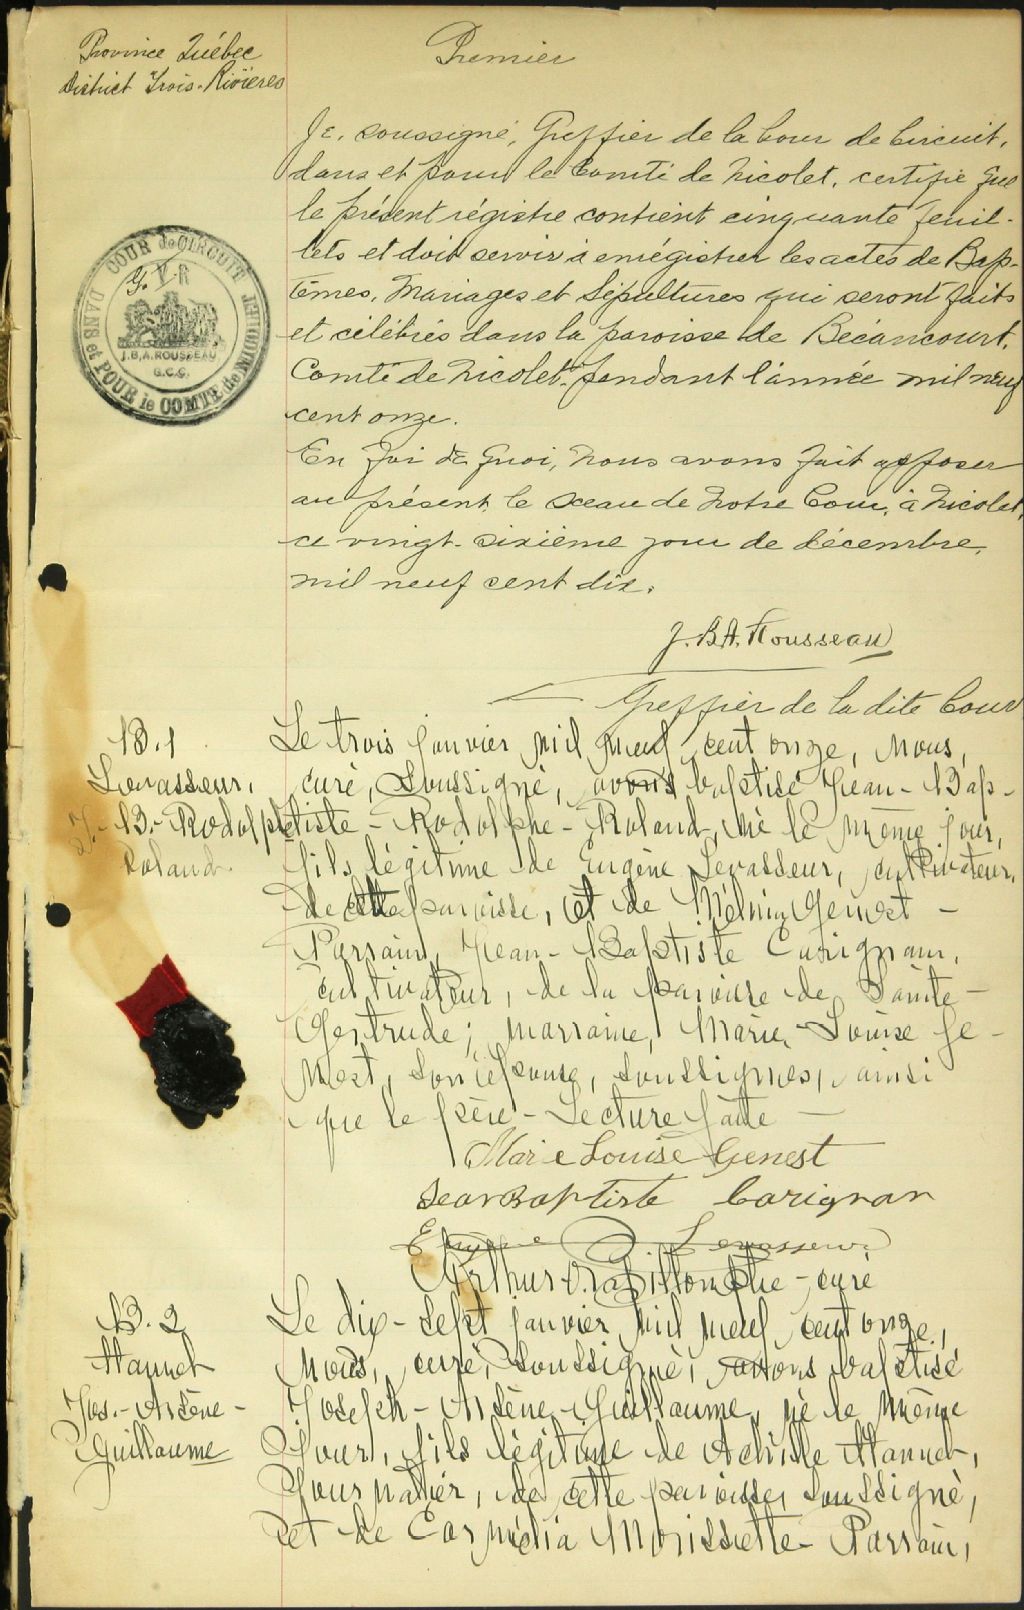 Province Québec
District Trois-Rivières
Premier
Je, soussigné, Greffier de la Cour de Circuit,
dans et pour le Comté de Nicolet, certifie que
le présent régistre contient cinquante feuil-
lets et doit servir à enrégistrer les actes de Bap-
têmes, Mariages et Sépultures qui seront faits
et célébrés dans la paroisse de Bécancourt,
Comté de Nicolet, pendant l'année mil neuf
cent onze.
COUR de CIRCUIT
DANS et POUR le COMTE de NICOLET
J.B.A. ROUSSEAU
G.C.C.
En foi de quoi, nous avons fait apposer
au présent le sceau de notre Cour, à Nicolet,
ce vingt-sixième jour de décembre,
mil neuf cent dix.
J. B.A. Rousseau
Greffier de la dite Cour
B. 1
Levasseur,
J.-B.-Rodolphe
Roland.
Le trois janvier mil neuf cent onze, Nous,
curé, soussigné, avons baptisé Jean-Bap-
tiste-Rodolphe-Roland, né le même jour,
fils légitime de Eugène Levasseur, cultivateur,
de cette paroisse, et de Genest -
Parrain, Jean-Baptiste Carignan,
cultivateur, de la paroisse de Sainte-
Gertrude; marraine, Marie-Louise Ge-
nest, son épouse, soussignés, ainsi
que le père - Lecture faite -
Marie Louise Genest
Jean Baptiste Carignan
Eugène Levasseur
Arthur curé
B. 2
Mannet
Jos.-Arsène-
Guillaume
Le dix-sept janvier mil neuf cent onze,
Nous, curé, soussigné, avons baptisé
Joseph-Arsène-Guillaume, né le même
jour, fils légitime de Achille
journalier, de cette paroisse, soussigné,
et de Morissette - Parrain,